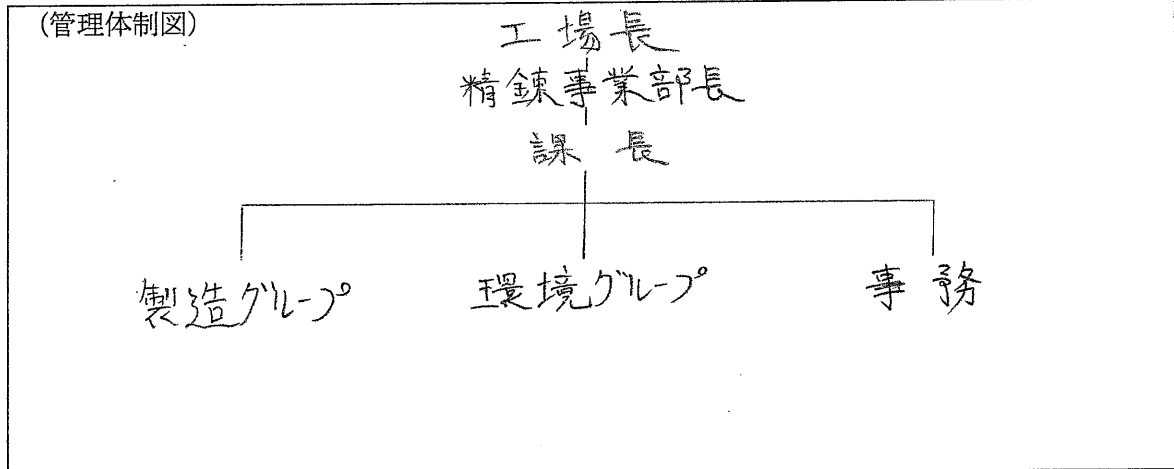 (管理体制図)
工場長
精錬事業部長
課長
製造グループ
環境グループ
事務